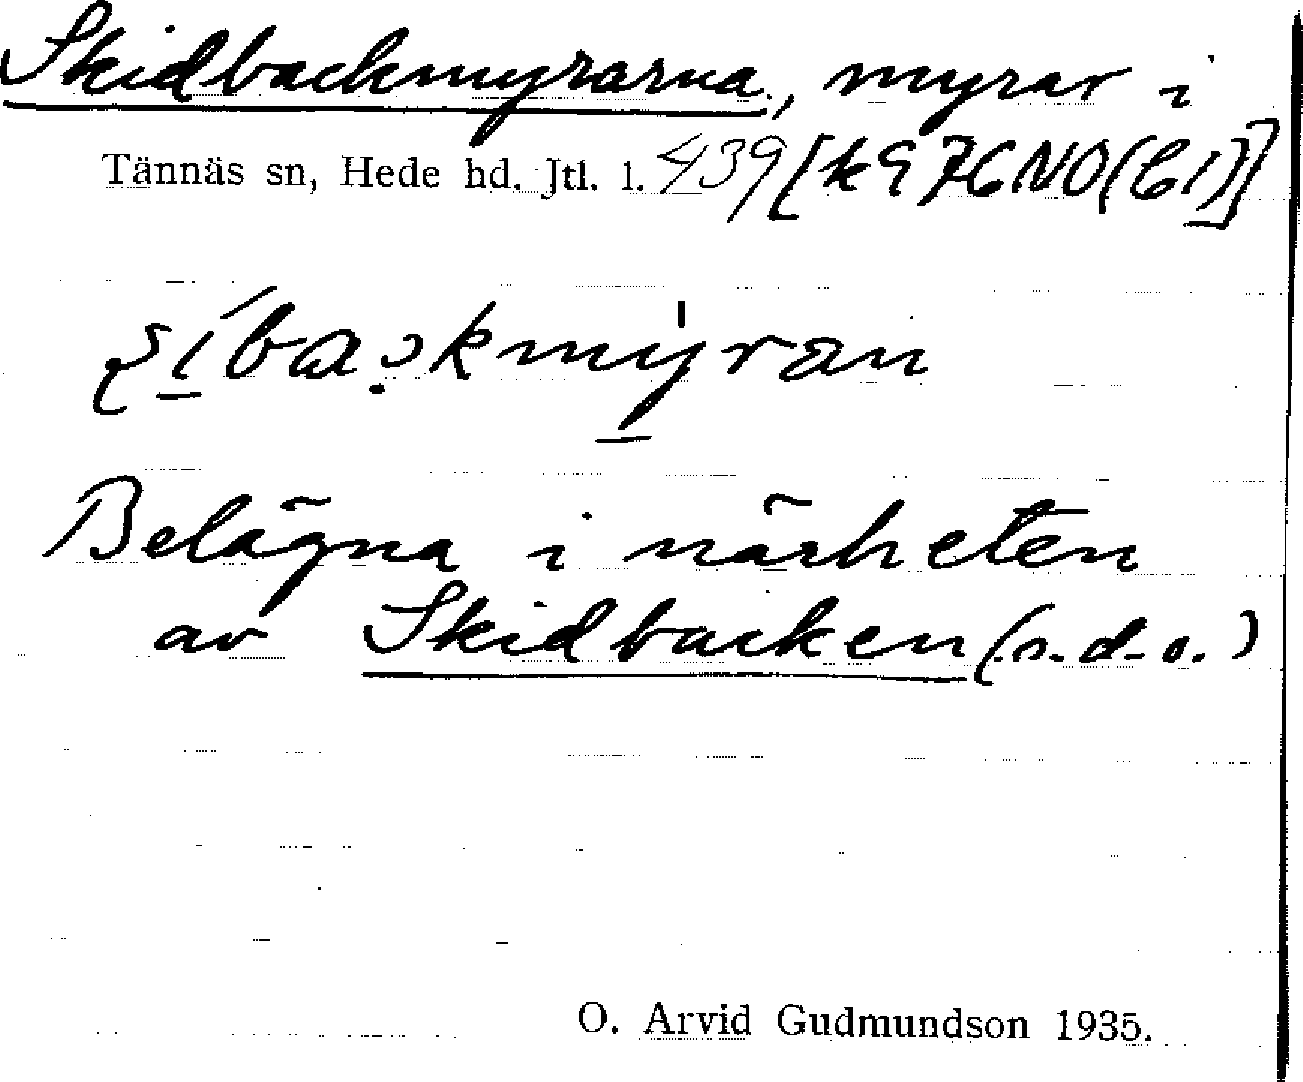 Skidbackmyrarna, myrar i
Tännäs sn, Hede hd. Jtl. l. 439 [k976NO(61)]
Belägna i närheten
av Skidbacken (s.d.o.)
O. Arvid Gudmundson 1935.